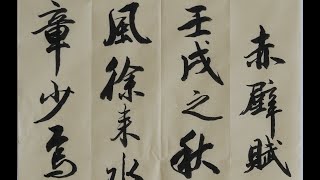 赤壁賦
壬戌之秋
風徐来水
章少焉